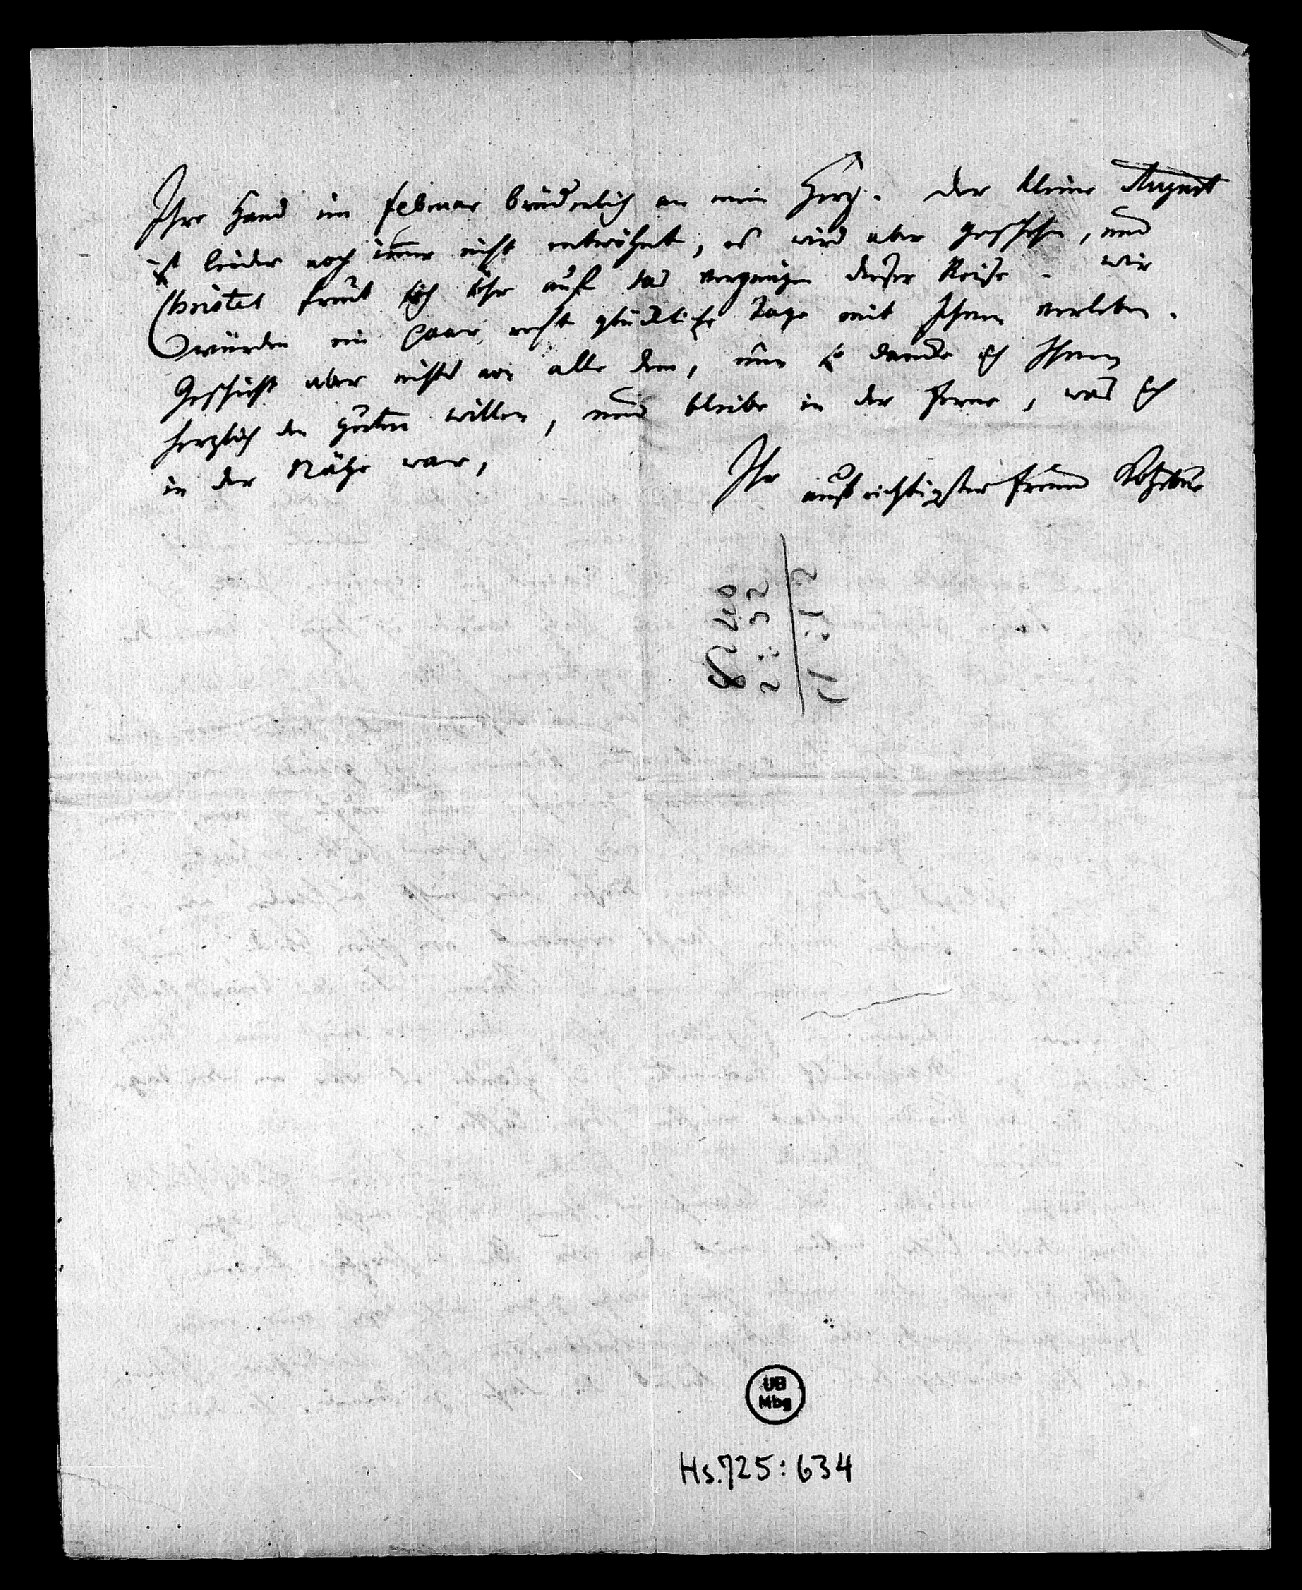 Ihre Hand im Februar brüderlich an mein Herz. Der kleine August
ist leider noch immer nicht entwöhnt, es wird aber geschehn, und
Christel freut sich sehr auf das Vergnügen dieser Reise. Wir
würden ein Paar recht glückliche Tage mit Ihnen verleben.
Geschieht aber nichts von alle dem, nun so danke ich Ihnen
herzlich den guten Willen, und bleibe in der Ferne, was ich
in der Nähe war,
Ihr aufrichtigster Freund Kotzebue
UB
Mbg
Hs. 725:634